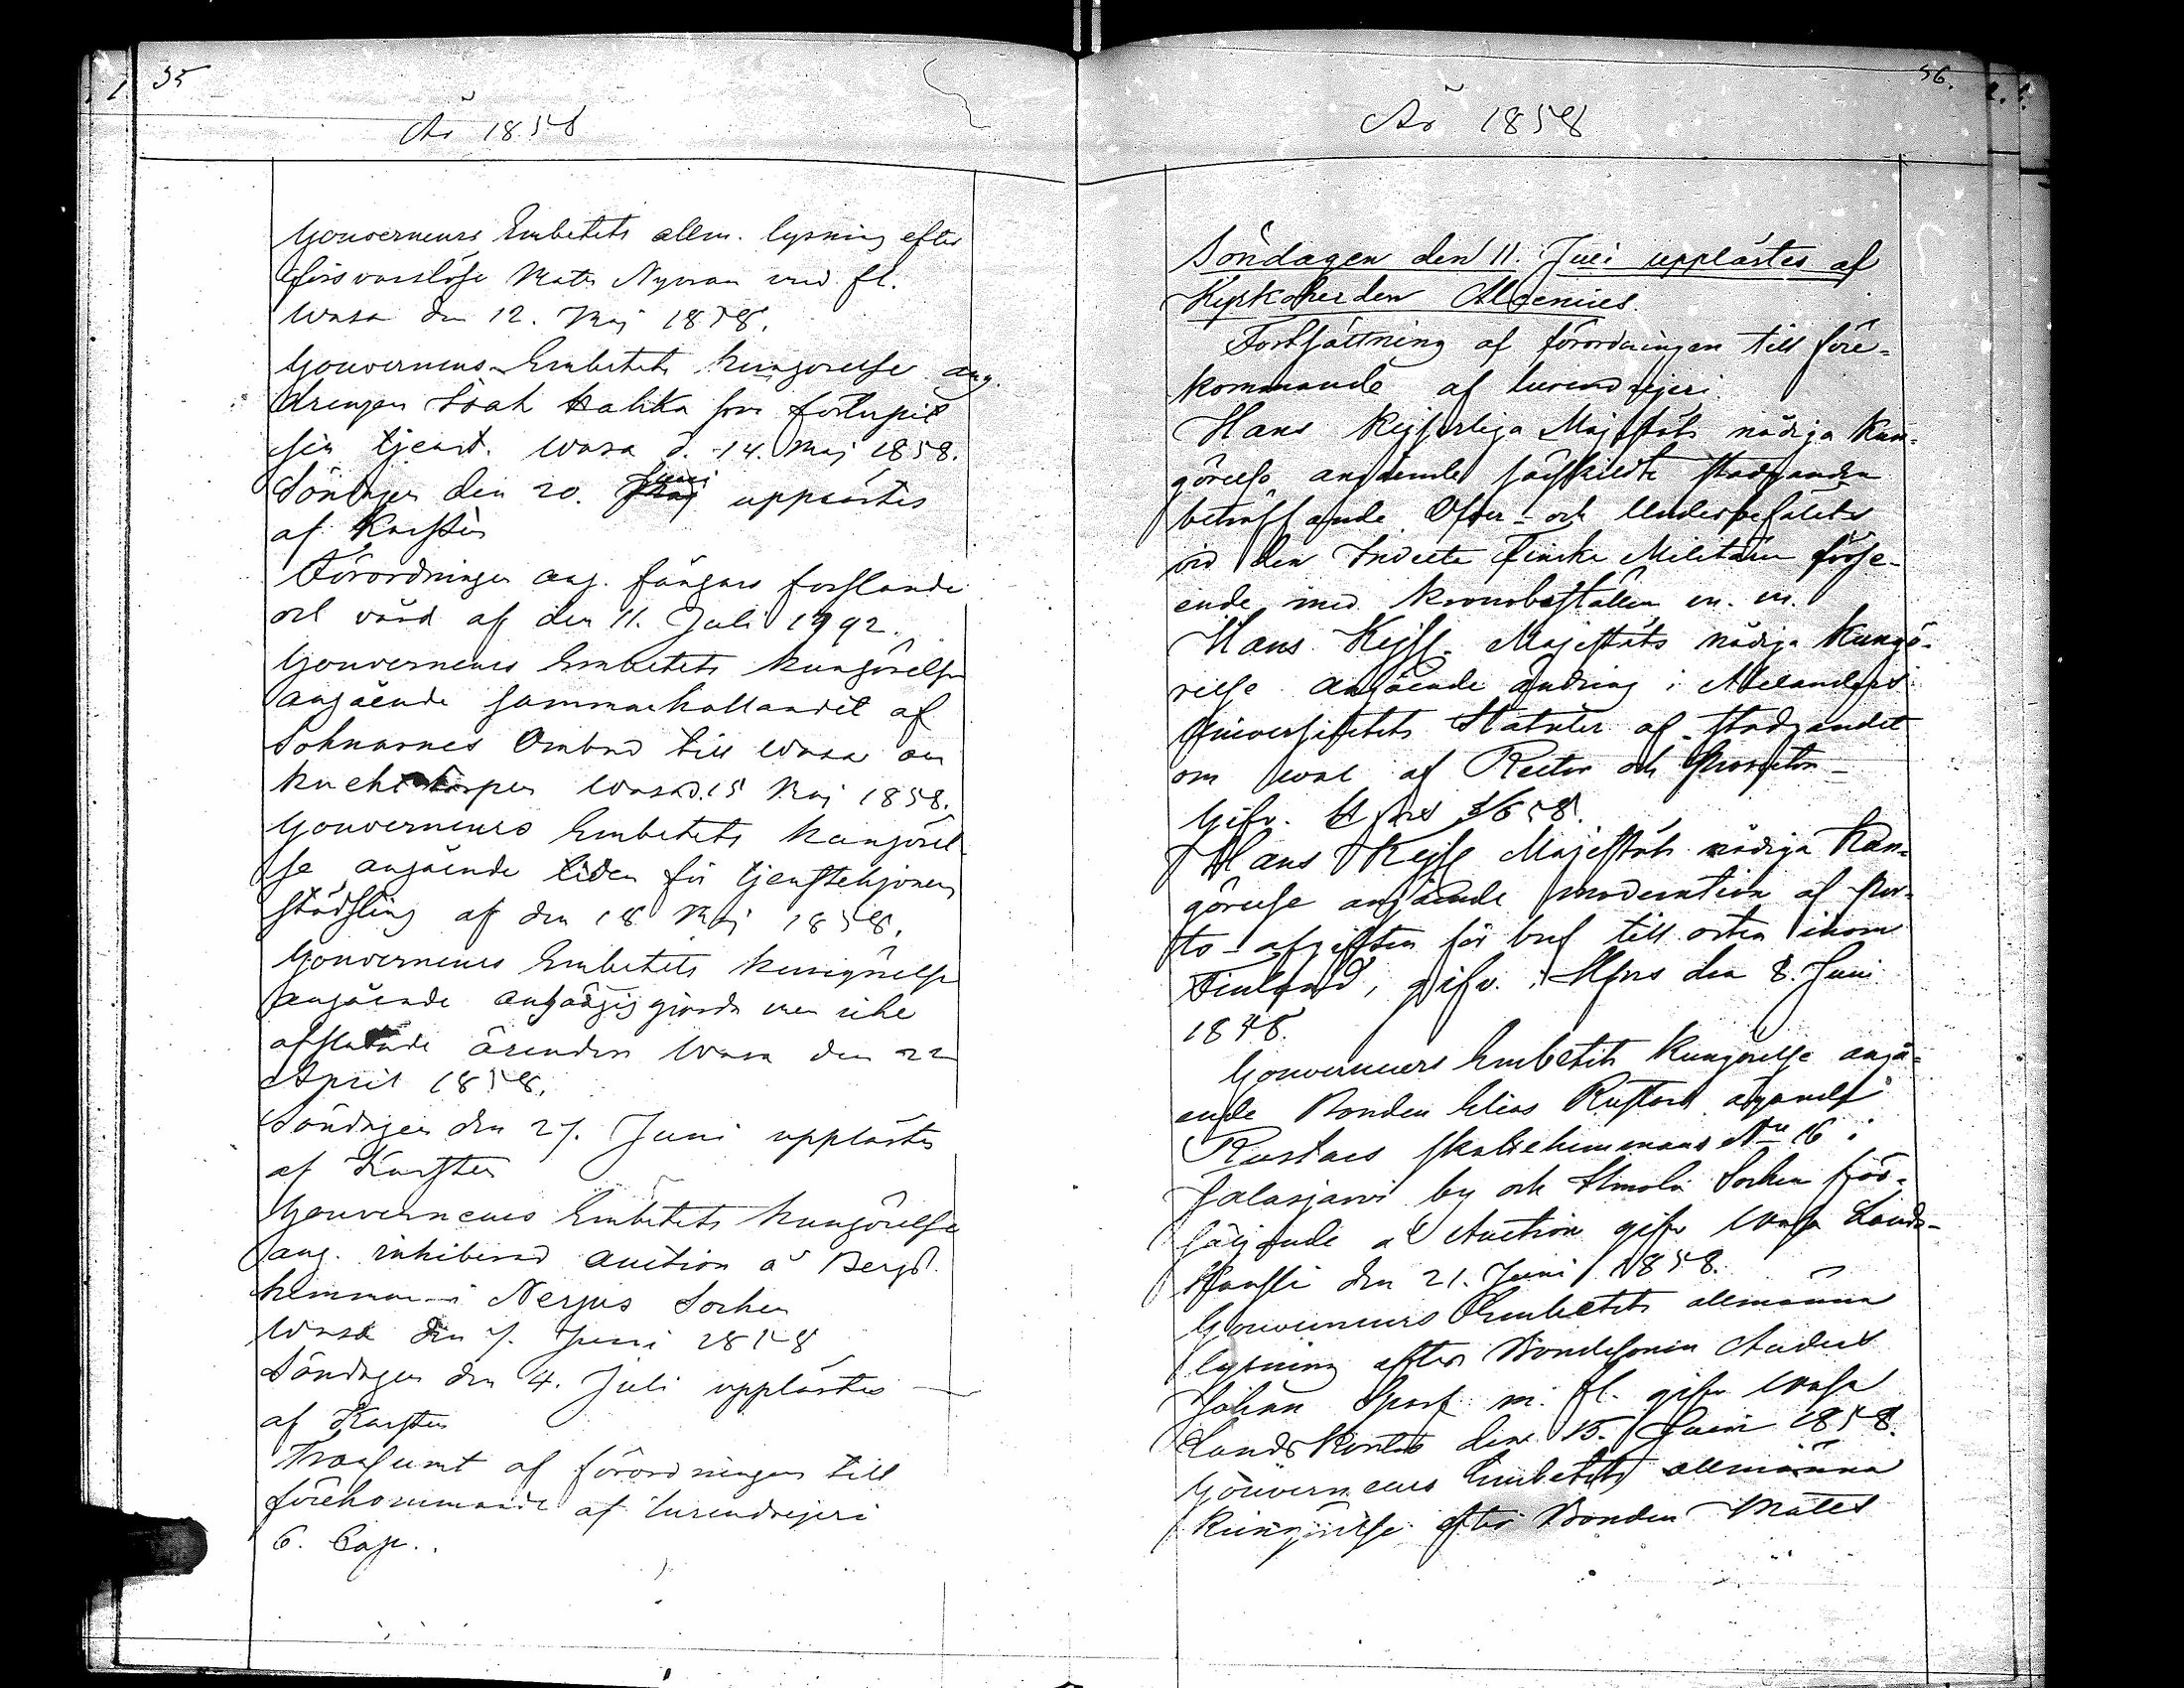 35
År 1858
Gouverneurs Embetets allm. lysning efter
försvarslöse Mats Nyman med fl.
Wasa den 12. Maj 1858.
Gouverneurs Embetets kungörelse ang.
drengen Isak som förlupit
sin tjenst. Wasa d. 14. Maj 1858.
Söndagen den 20. Juni upplästes
af Karsten
Förordningen ang. fångars forslande
och vård af den 11. Juli 1792.
Gouverneurs Embetets kungörelse
angående sammankallandet af
Soknarnes Ombud till Wasa om
Wasa d. 15 Maj 1858.
Gouverneurs Embetets kungörel-
se angående tiden för tjenstehjonens
städsling af den 18 Maj 1858.
Gouverneurs Embetets kungörelse
angående anhängiggjorda men icke
afslutade ärenden Wasa den 22
April 1858.
Söndagen den 27. Juni upplästes
af Karsten
Gouverneurs Embetets kungörelse
ang. inhiberad auction å Bergs
hemman i Nerpes Socken
Wasa den 7. Juni 1858
Söndagen den 4. Juli upplästes
af Karsten
Transumt af förordningen till
förekommande af lurendrejeri
6. Cap..
56.
År 1858
Söndagen den 11. Juli upplästes af
Kyrkoherden Alcenius.
Fortsättning af förordningen till före-
kommande af lurendrejeri.
Hans Kejserliga Majestäts nådiga Kun-
görelse angående särskildte stadganden
beträffande Öfver- och Underbefälets
vid den Indelta Finska Militären förse-
ende med Kronoboställen m. m.
Hans Kejss. Majestäts nådiga Kungö-
relse angående ändring i Alexanders
Universitetets Statuter af stadgandet
om wal af Rector och Prorector
Gifv. H:fors
Hans Kejss Majestäts nådiga Kun-
görelse angående moderation af Por-
to-afgiften för bref till orter inom
Finland, gifv. i H:fors den 8. Juni
1858.
Gouverneurs Embetets Kungörelse angå-
ende Bonden Elias Rustari ägande
Rustari skattehemmans N:o 16 i
Jalasjärvi by och Ilmola Socken för-
säljande å Auction gifv Wasa Lands-
Kansli den 21. Juni 1858.
Gouverneurs Embetets allmänna
lysning efter Bondesonen Anders
Johan m. fl. gifv Wasa
Lands Kontor den 15. Juni 1858.
Gouverneurs Embetets allmänna
Kungörelse efter Bonden Matts